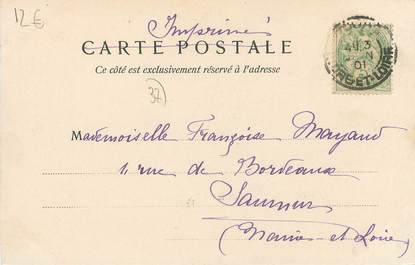 12€
Imprimés
CARTE POSTALE
Ce côté est exclusivement réservé à l'adresse
37
Mademoiselle Françoise Mayaud
1 rue de Bordeaux
Saumur
(Maine-et-Loire)